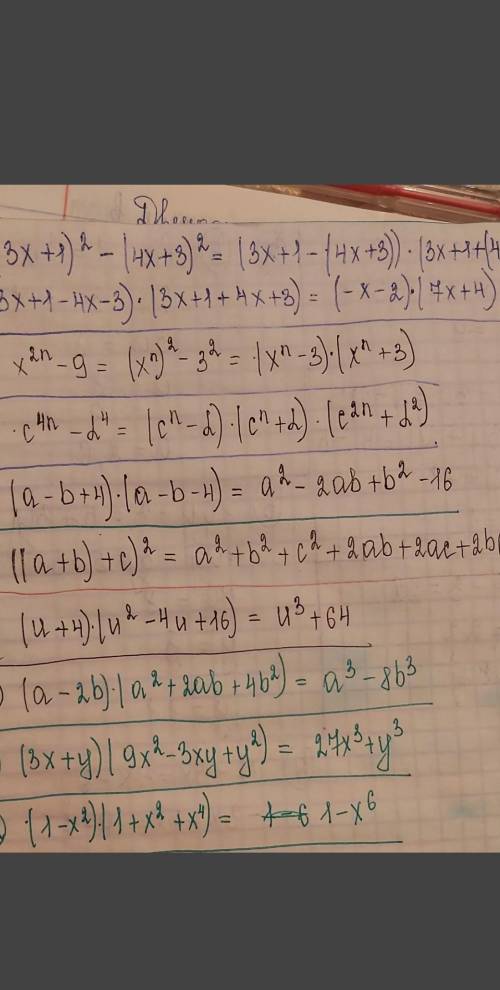 3x+1)² - (4x+3)² = (3x+1-(4x+3))·(3x+1+(4
3x+1-4x-3)·(3x+1+4x+3) = (-x-2)·(7x+4)
x²ⁿ - 9 = (xⁿ)² - 3² = (xⁿ-3)·(xⁿ+3)
·c⁴ⁿ - d⁴ = (cⁿ-d)·(cⁿ+d)·(c²ⁿ+d²)
(a-b+4)·(a-b-4) = a² - 2ab+b² - 16
((a+b)+c)² = a²+b²+c²+2ab+2ac+2b
(u+4)·(u²-4u+16) = u³+64
) (a-2b)·(a²+2ab+4b²) = a³-8b³
(3x+y)(9x²-3xy+y²) = 27x³+y³
) ·(1-x²)·(1+x²+x⁴) = 1-x⁶